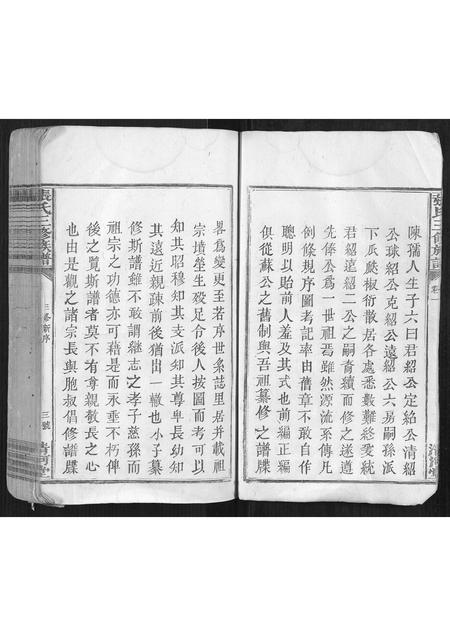 陳孺人生子六曰君紹公定紹公清紹
公球紹公克紹公遠紹公六易嗣孫派
下瓜瓞椒衍散居各處悉數難終爰統
君紹遠紹二公之嗣青續而修之遂遵
先俸公爲一世祖焉雖然源流系傳凡
例條規序圖考記率由舊章不敢自作
聰明以貽前人羞及其式也前編正編
俱從蘇公之舊制與吾祖纂修之譜牒
畧爲變更至若序世系誌里居并載祖
宗墳塋生殁足令後人按圖而考可以
知其昭穆知其支派知其尊卑長幼知
其遠近親疎前後猶出一轍也小子纂
修斯譜雖不敢謂繼志之孝子慈孫而
祖宗之功德亦可藉是而永垂不朽俾
後之覽斯譜者莫不有尊親敬長之心
也由是觀之諸宗長與胞叔倡修譜牒
張氏三修族譜
三修新序
三號
清河堂
張氏三修族譜
清河堂